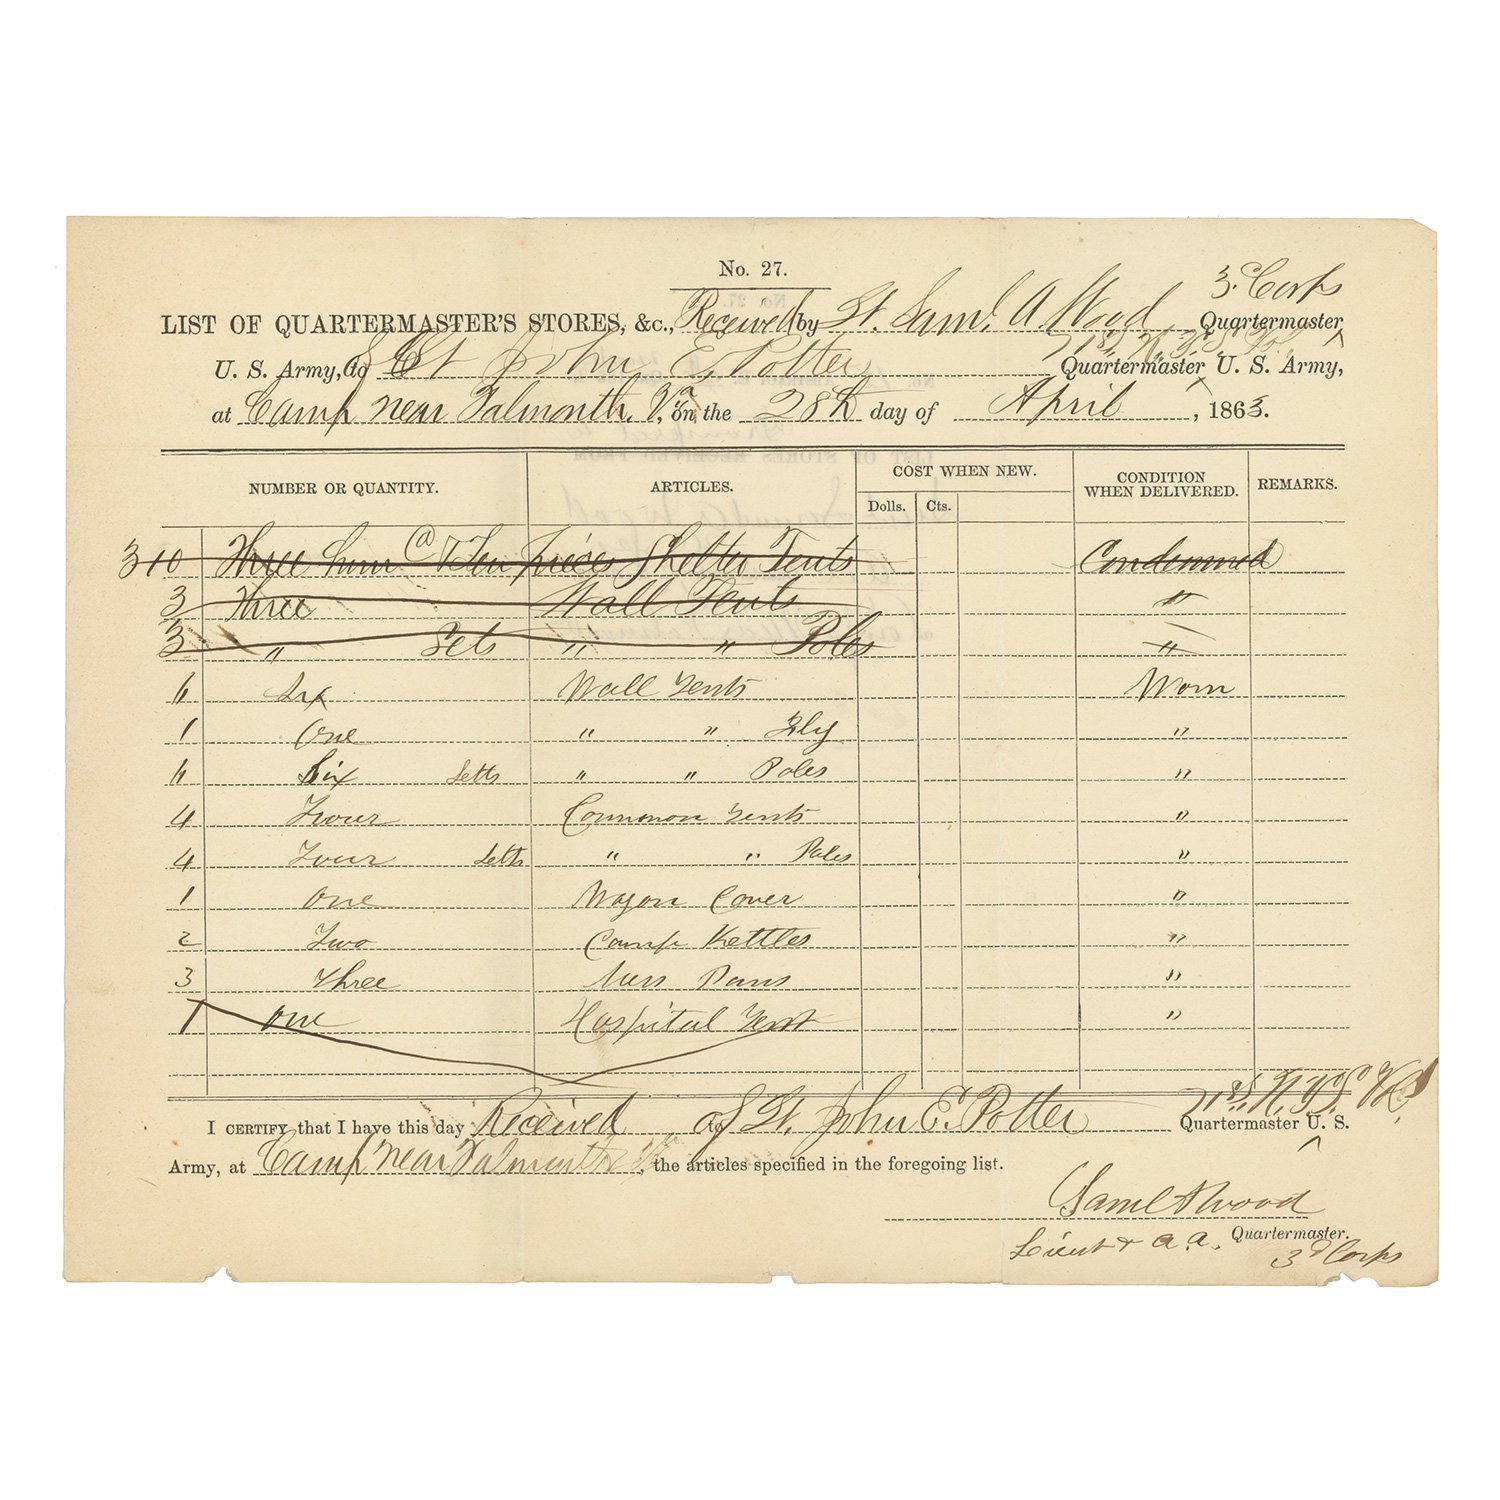 No. 27.
3. Corps
LIST OF QUARTERMASTER'S STORES, &c., Received by Lt. Saml. A Wood Quartermaster
71st N.Y.S. Vol.
U. S. Army, of Lt John E. Potter Quartermaster U. S. Army,
at Camp near Falmouth, Va, on the 28th day of April, 1863.
NUMBER OR QUANTITY. ARTICLES. COST WHEN NEW. CONDITION WHEN DELIVERED. REMARKS.
Dolls. Cts.
310 Three hun @ Ten pieces Shelter Tents Condemned
3 Three Wall Tents "
3 " Sets " " Poles "
6 Six Wall Tents Worn
1 One " " Fly "
6 Six Setts " " Poles "
4 Fouer Common Tents "
4 Four Setts " " Poles "
1 One Wagon Cover "
2 Two Camp Kettles "
3 Three Mess Pans "
1 One Hospital Tent "
71st N.Y.S. Vol,
I CERTIFY that I have this day Received of Lt. John E. Potter Quartermaster U. S.
Army, at Camp near Falmouth Va, the articles specified in the foregoing list.
Saml A Wood
Quartermaster.
Lieut & a. a. 3d Corps